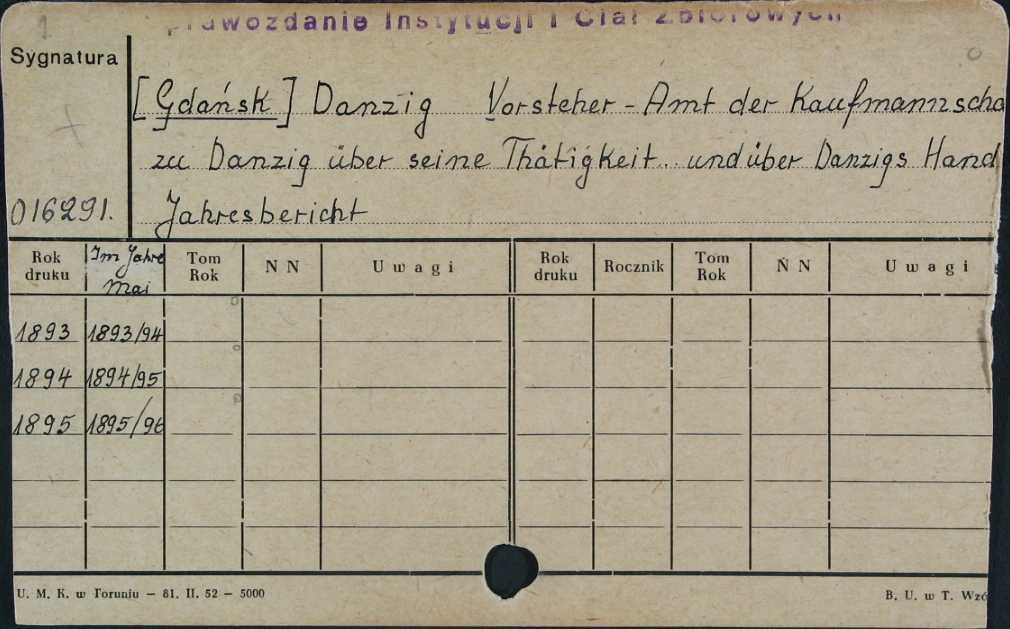 Instytucji i Ciał Zbiorowych
Sygnatura
[Gdańsk] Danzig Vorsteher-Amt der Kaufmannscha
zu Danzig über seine Thätigkeit.. und über Danzigs Hand
016291.
Jahresbericht
Rok druku
Im Jahre Mai
Tom Rok
N N
Uwagi
Rok druku
Rocznik
Tom Rok
N N
Uwagi
1893 1893/94
1894 1894/95
1895 1895/96
U. M. K. w Toruniu – 81. II. 52 – 5000
B. U. w T. Wzó